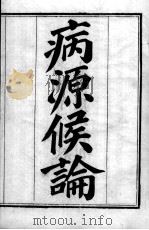 病源候論
www.toutu.info